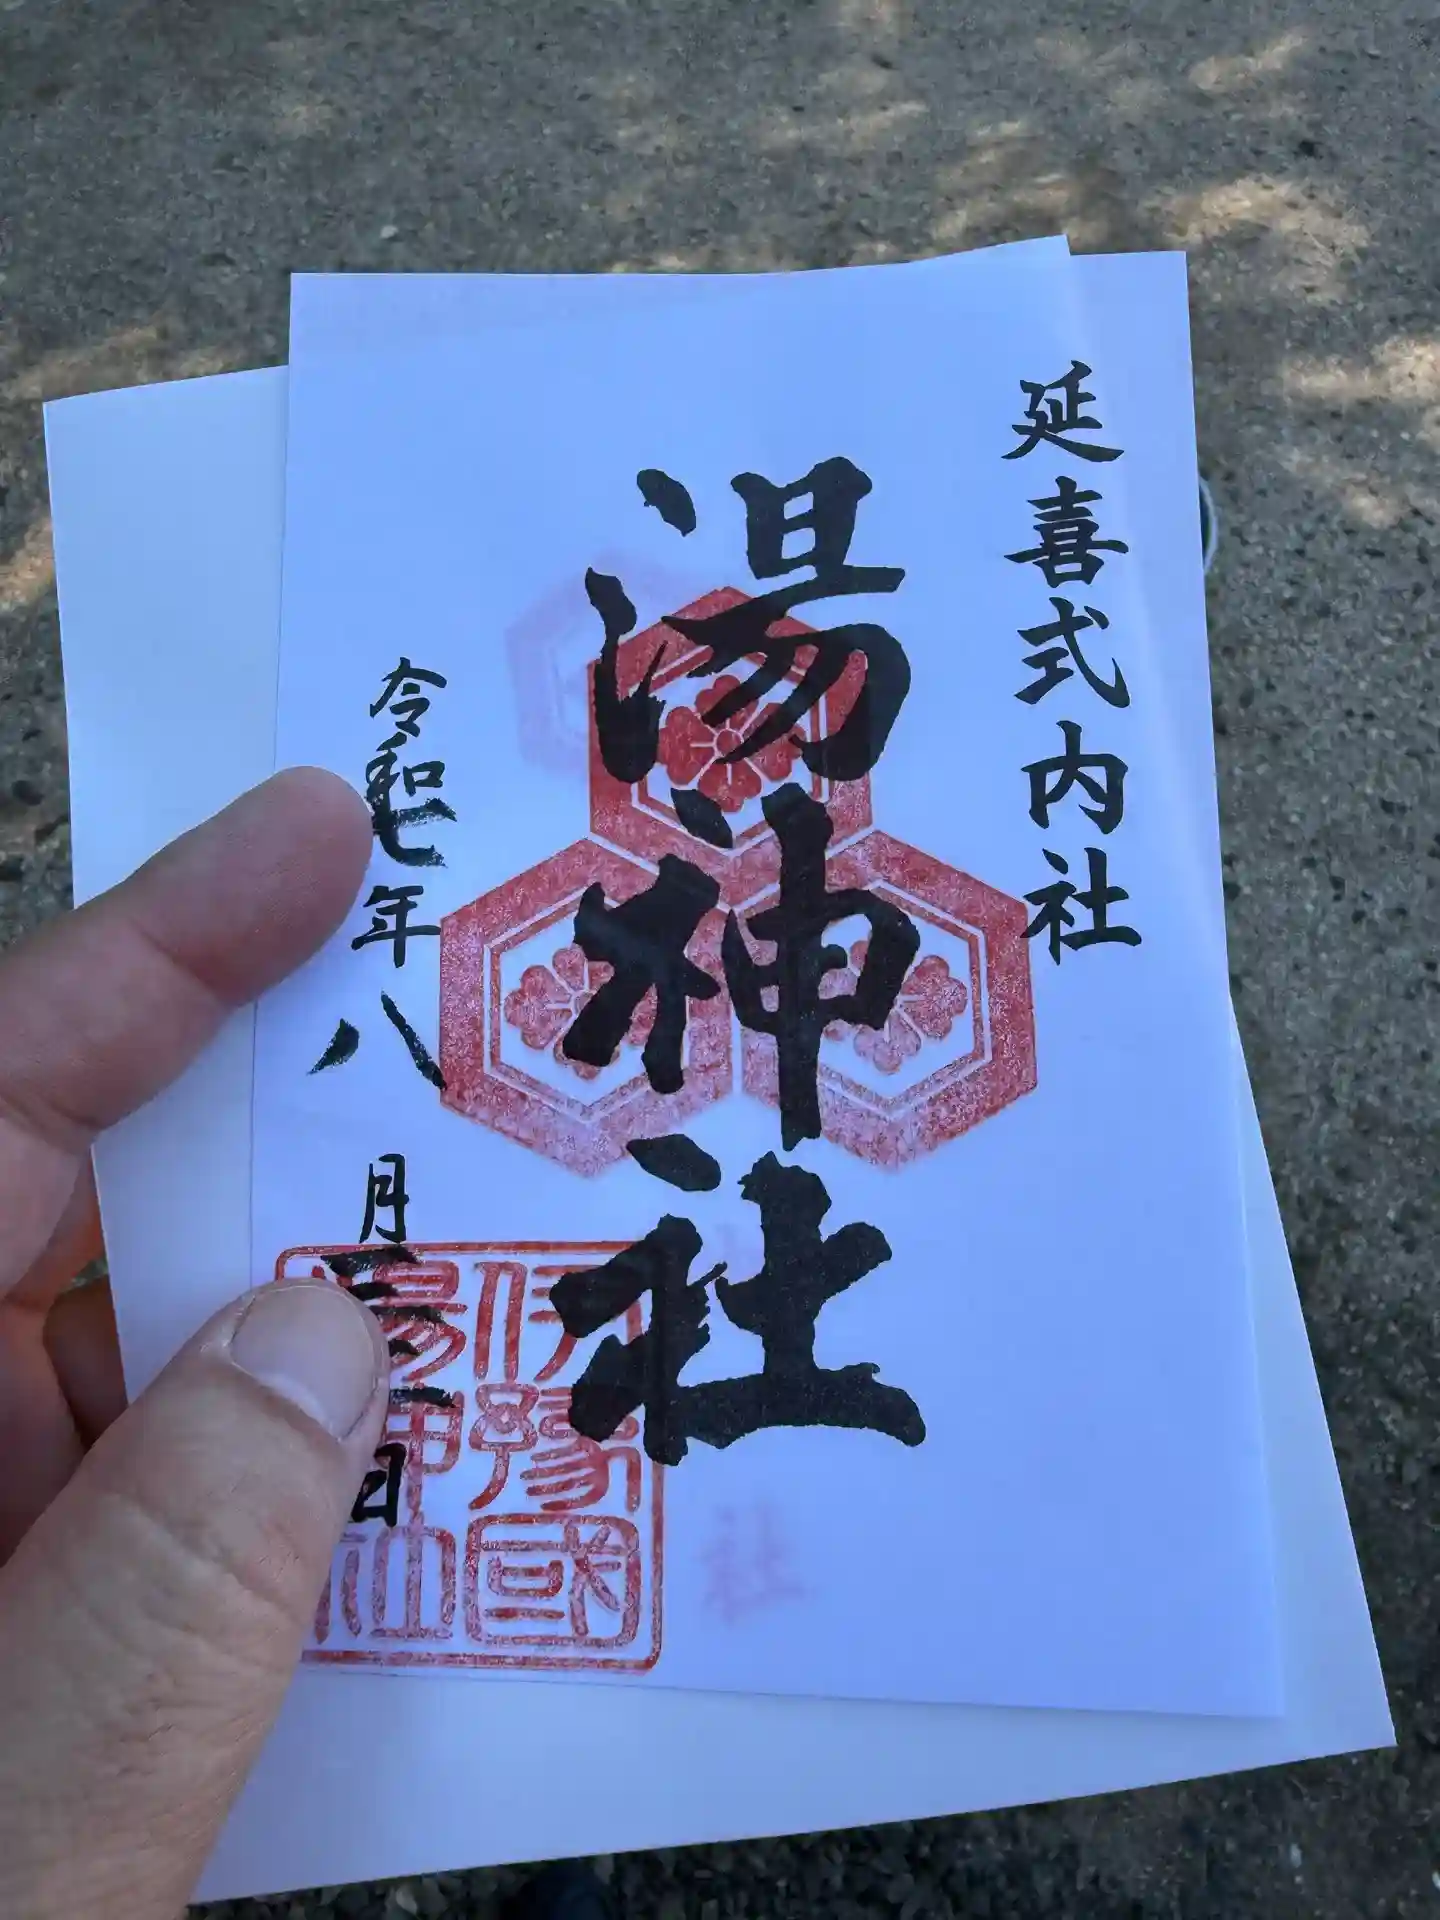 延喜式内社
湯神社
令和七年八月三十一日
伊豫國
湯神社